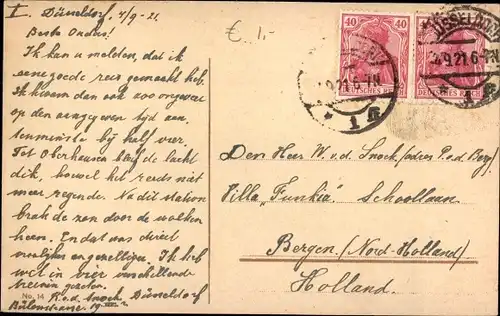 I Düsseldorf 4/9-21.
Beste Ouders!
Ik kan u melden, dat ik
een goede reis gemaakt heb.
Ik kwam dan ook zoo ongeveer
op den aangegeven tijd aan,
tenminste bij half vier
Tot Oberhausen bleef de lucht
dik, hoewel het reeds niet
meer regende. Na dit station
brak de zon door de wolken
heen. En dat was direct
vroolijker en gezelliger. Ik heb
wel in vier verschillende
treinen gezeten.
No. 14 R.v.d. Snoek, Düsseldorf
€ 1,-
40 40
DEUTSCHES REICH DEUTSCHES REICH
DÜSSELDORF
4.9.21.6-7N
* 1 n
Den Heer W. v. d. Snoek (adres P. v. d. Berg)
Villa "Funkia" Schoollaan
Bergen (Nord-Holland)
Holland.